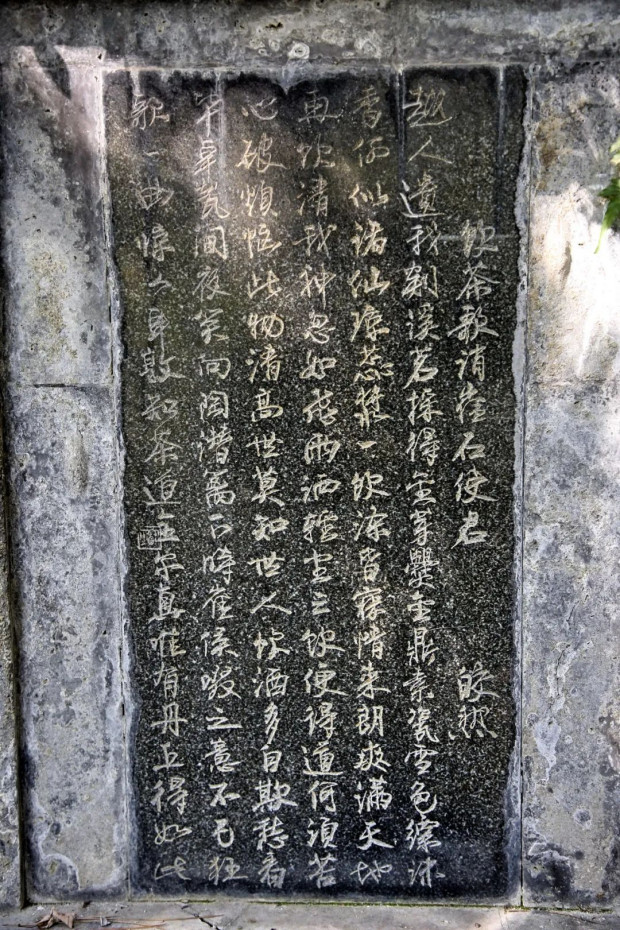 飲茶歌誚崔石使君 皎然
越人遺我剡溪茗採得金芽爨金鼎素瓷雪色縹沫
香何似諸仙瓊蕊漿一飲滌昏寐情来朗爽滿天地
再飲清我神忽如飛雨洒輕尘三飲便得道何須苦
心破煩惱此物清高世莫知世人飲酒多自欺愁看
畢卓瓮間夜笑向陶潛籬下時崔侯啜之意不已狂
歌一曲惊人耳孰知茶道全尔真唯有丹丘得如此